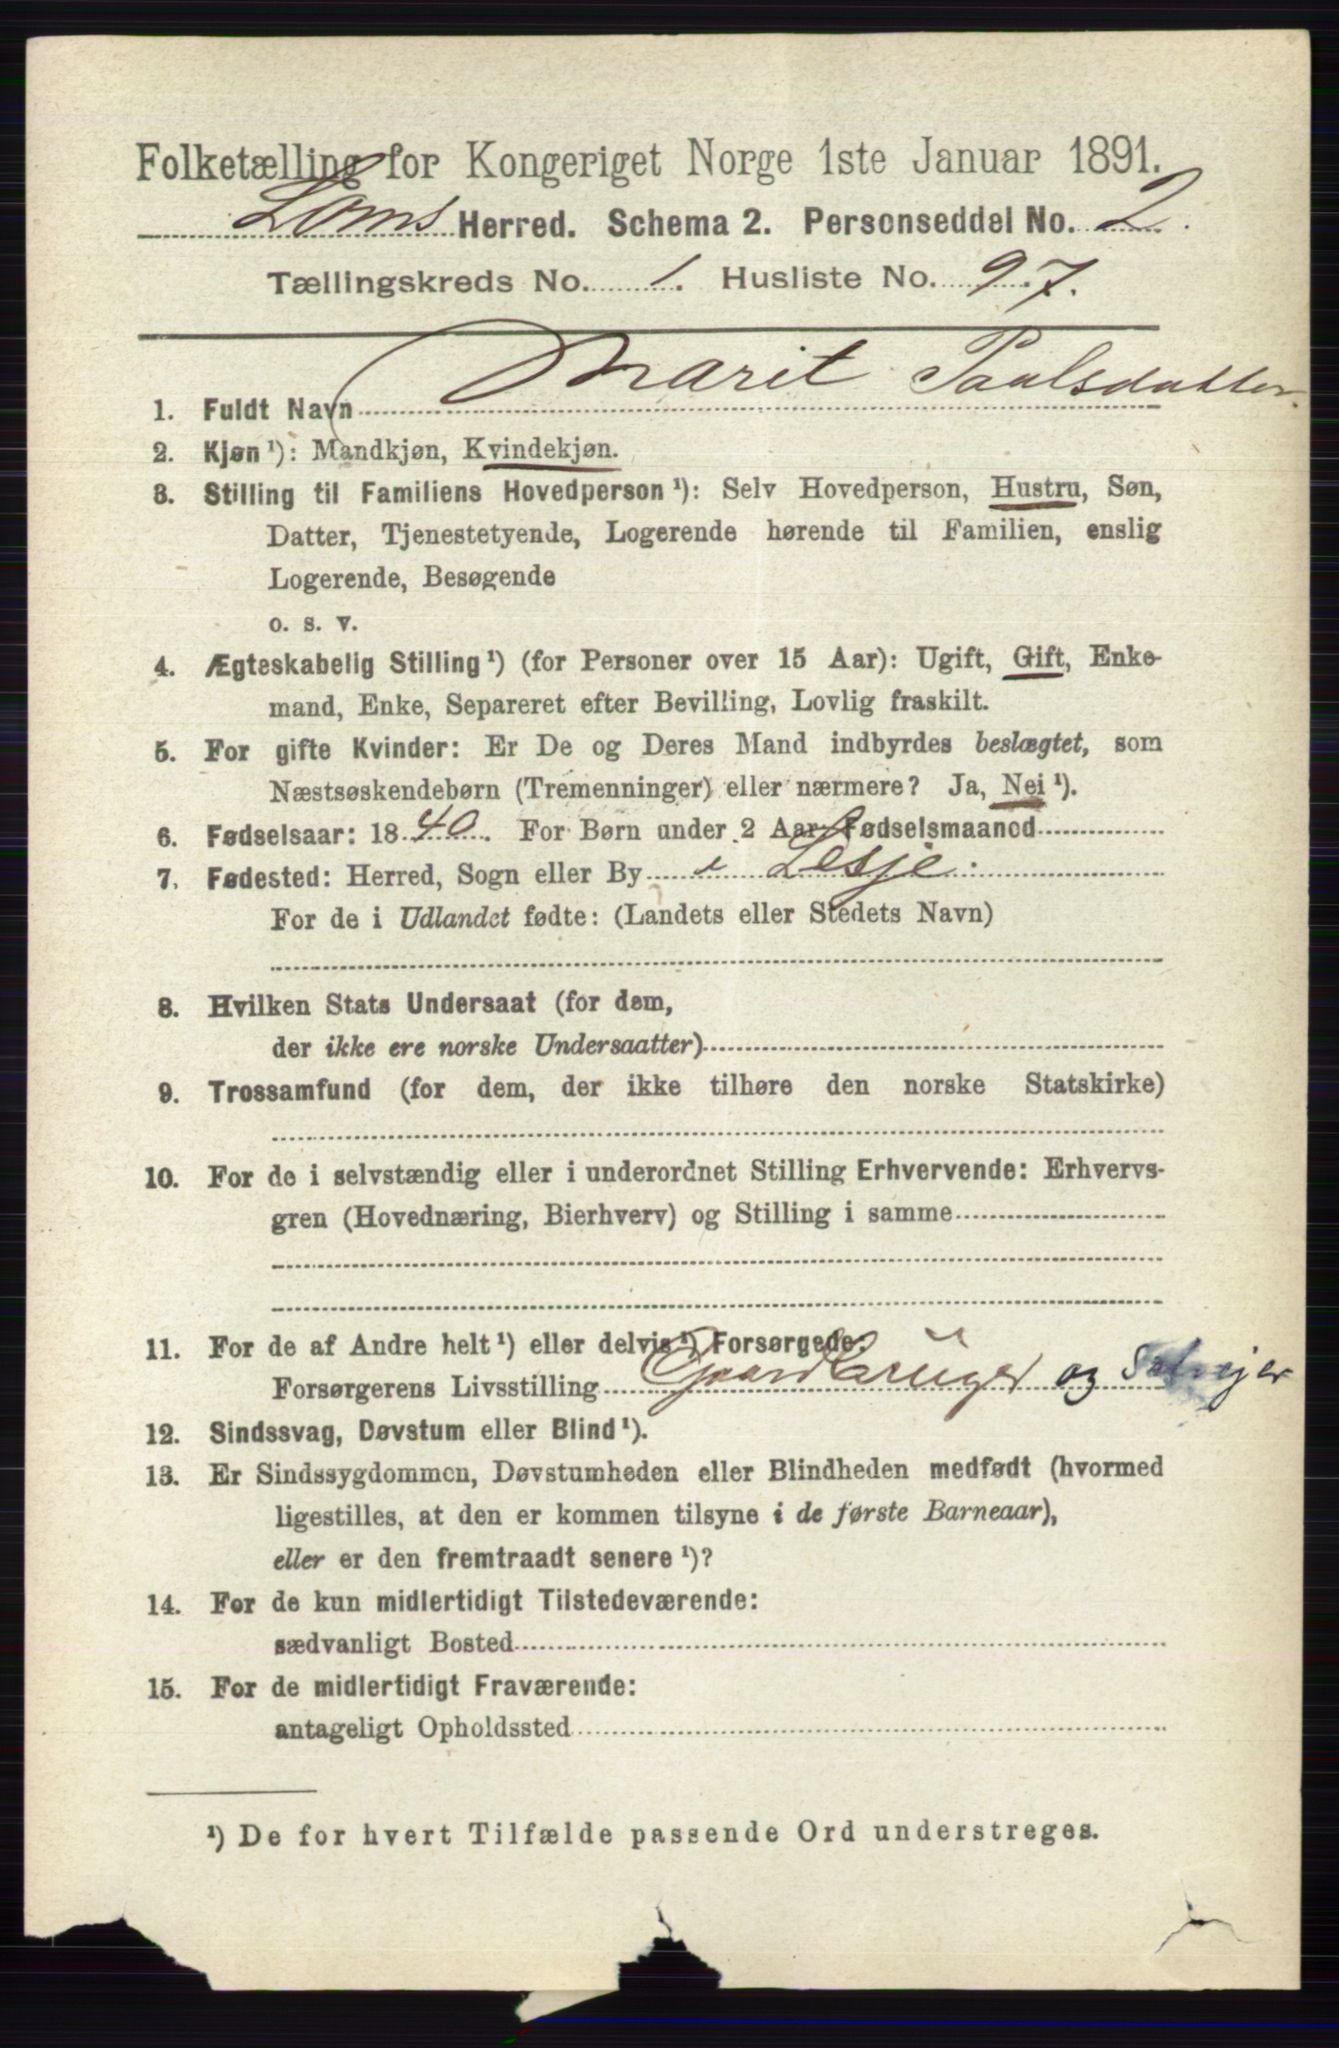 Folketælling for Kongeriget Norge 1ste Januar 1891.
Loms Herred. Schema 2. Personseddel No. 2.
Tællingskreds No. 1. Husliste No. 97.
1. Fuldt Navn Marit Paulsdatter.
2. Kjøn ¹): Mandkjøn, Kvindekjøn.
3. Stilling til Familiens Hovedperson ¹): Selv Hovedperson, Hustru, Søn,
Datter, Tjenestetyende, Logerende hørende til Familien, enslig
Logerende, Besøgende
o. s. v.
4. Ægteskabelig Stilling ¹) (for Personer over 15 Aar): Ugift, Gift, Enke-
mand, Enke, Separeret efter Bevilling, Lovlig fraskilt.
5. For gifte Kvinder: Er De og Deres Mand indbyrdes beslægtet, som
Næstsøskendebørn (Tremenninger) eller nærmere? Ja, Nei ¹).
6. Fødselsaar: 1840. For Børn under 2 Aar: Fødselsmaaned
7. Fødested: Herred, Sogn eller By i Lesje.
For de i Udlandet fødte: (Landets eller Stedets Navn)
8. Hvilken Stats Undersaat (for dem,
der ikke ere norske Undersaatter)
9. Trossamfund (for dem, der ikke tilhøre den norske Statskirke)
10. For de i selvstændig eller i underordnet Stilling Erhvervende: Erhvervs-
gren (Hovednæring, Bierhverv) og Stilling i samme
11. For de af Andre helt ¹) eller delvis ¹) Forsørgede:
Forsørgerens Livsstilling Gaardbruger og Selvejer
12. Sindssvag, Døvstum eller Blind ¹).
13. Er Sindssygdommen, Døvstumheden eller Blindheden medfødt (hvormed
ligestilles, at den er kommen tilsyne i de første Barneaar),
eller er den fremtraadt senere ¹)?
14. For de kun midlertidigt Tilstedeværende:
sædvanligt Bosted
15. For de midlertidigt Fraværende:
antageligt Opholdssted
¹) De for hvert Tilfælde passende Ord understreges.